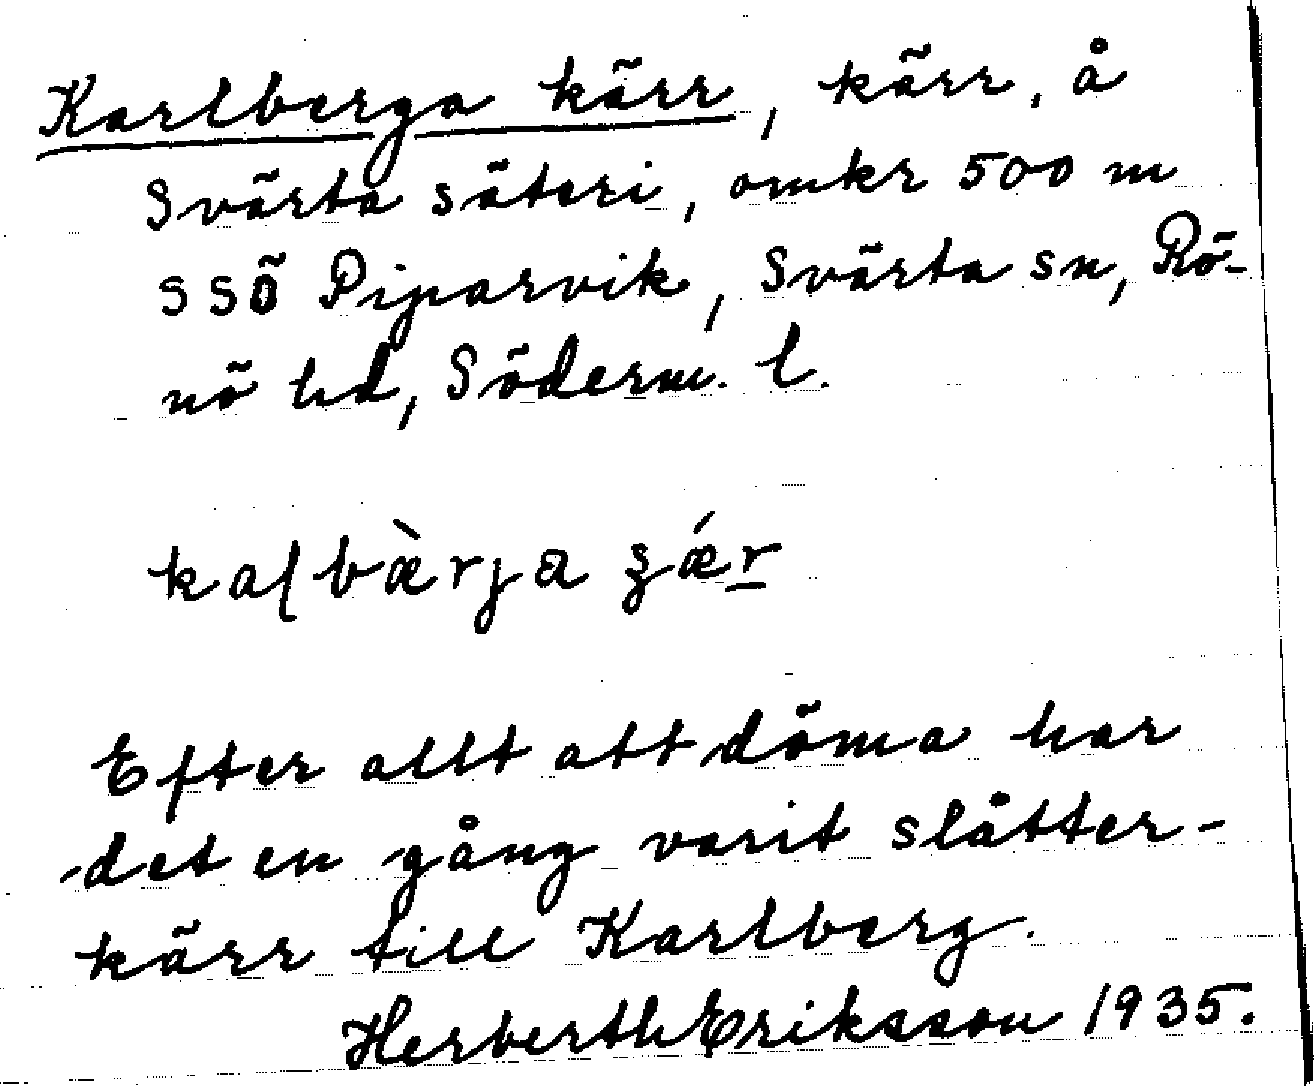 Karlberga kärr, kärr, å
Svärta säteri, omkr 500 m
SSÖ Piparvik, Svärta sn, Rö-
nö hd, Söderm. l.
Efter allt att döma har
det en gång varit slåtter-
kärr till Karlberg.
Herberth Eriksson 1935.